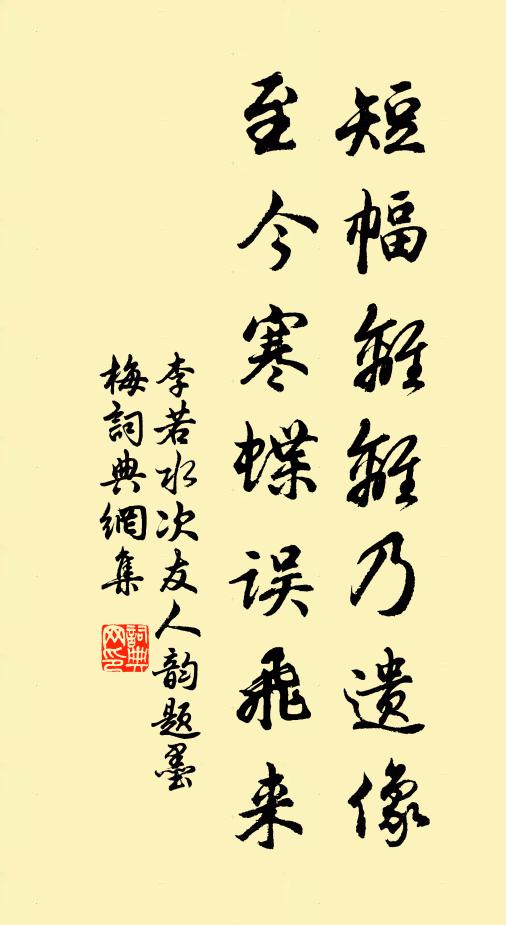 短幅離離乃遗像
至今寒蝶误飛来
李若水次友人韵题墨
梅詞典網集
詞典
网印